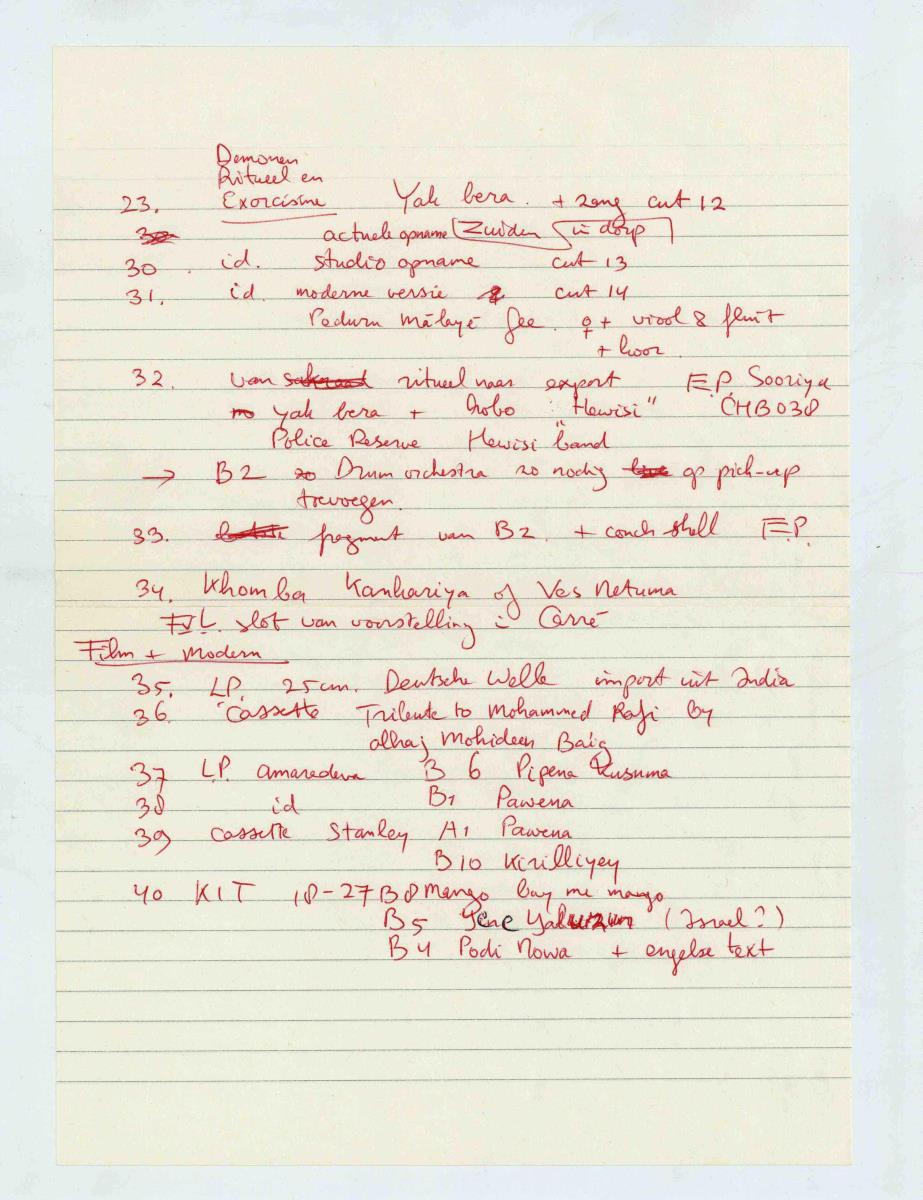 Demonen
Ritueel en
23. Exorcisme Yak bera. + zang cut 12
30 actuele opname Zuiden in dorp
30. id. studio opname cut 13
31. id. moderne versie cut 14
Peduru Mālayē Gee. ♀ + viool & fluit
+ koor.
32. van rituel naar export E.P. Sooriya
yak bera + hobo "Hewisi" CHB 038
Police Reserve Hewisi band
→ B2 Drum orchestra zo nodig op pick-up
toevoegen.
33. fragment van B2. + conch shell E.P.
34. Khomba Kankariya of Ves Netuma
slot van voorstelling i Carré
Film + modern
35. LP. 25cm. Deutsche Welle import uit India
36. Cassette Tribute to Mohammed Rafi by
alhaj Mohideen Baig
37 LP. amaradeva B 6 Pipena Kusuma
38 id B1 Pawena
39 cassette Stanley A1 Pawena
B10 Kirilliyey
40 KIT 18-27 B8 Mango buy me mango
B5 (Israel?)
B4 Podi Nowa + engelse text